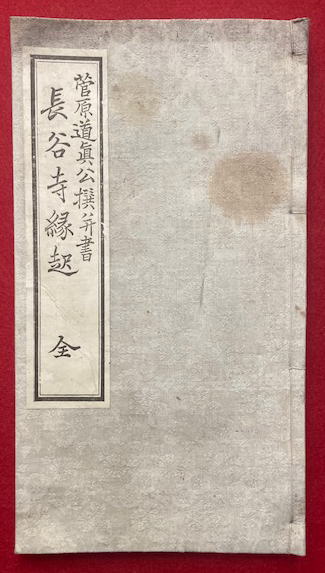 菅原道眞公撰并書
長谷寺縁起 全